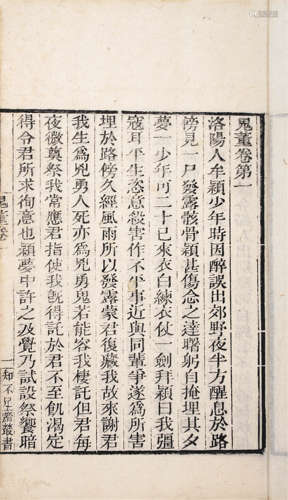 鬼董卷第一
洛陽人牟穎少年時因醉誤出郊野夜半方醒息於路
傍見一尸發露骸骨穎甚傷念之達曙躬自掩埋其夕
夢一少年可二十已來衣白練衣仗一劍拜穎曰我彊
寇耳平生恣意殺害作不平事近與同輩爭遂爲所害
埋於路傍久經風雨所以發露蒙君復藏我故來謝君
我生爲兇勇人死亦爲兇勇鬼若能容我棲託但君每
夜微奠祭我當應君指使我既得託於君不至飢渴足
得令君所求徇意也穎夢中許之及覺乃試設祭饗暗
鬼董卷一
知不足齋叢書